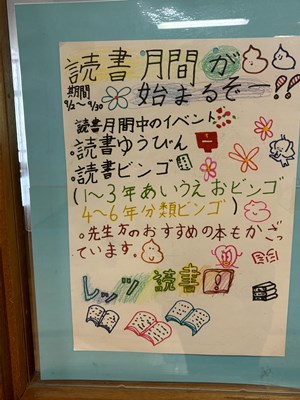 読書月間が
期間
9/2〜9/30
始まるぞー!!
読書月間中のイベント
。読書ゆうびん
。読書ビンゴ
(1〜3年あいうえおビンゴ
4〜6年分類ビンゴ)
。先生方のおすすめの本もかざ
っています。
レッツ読書!